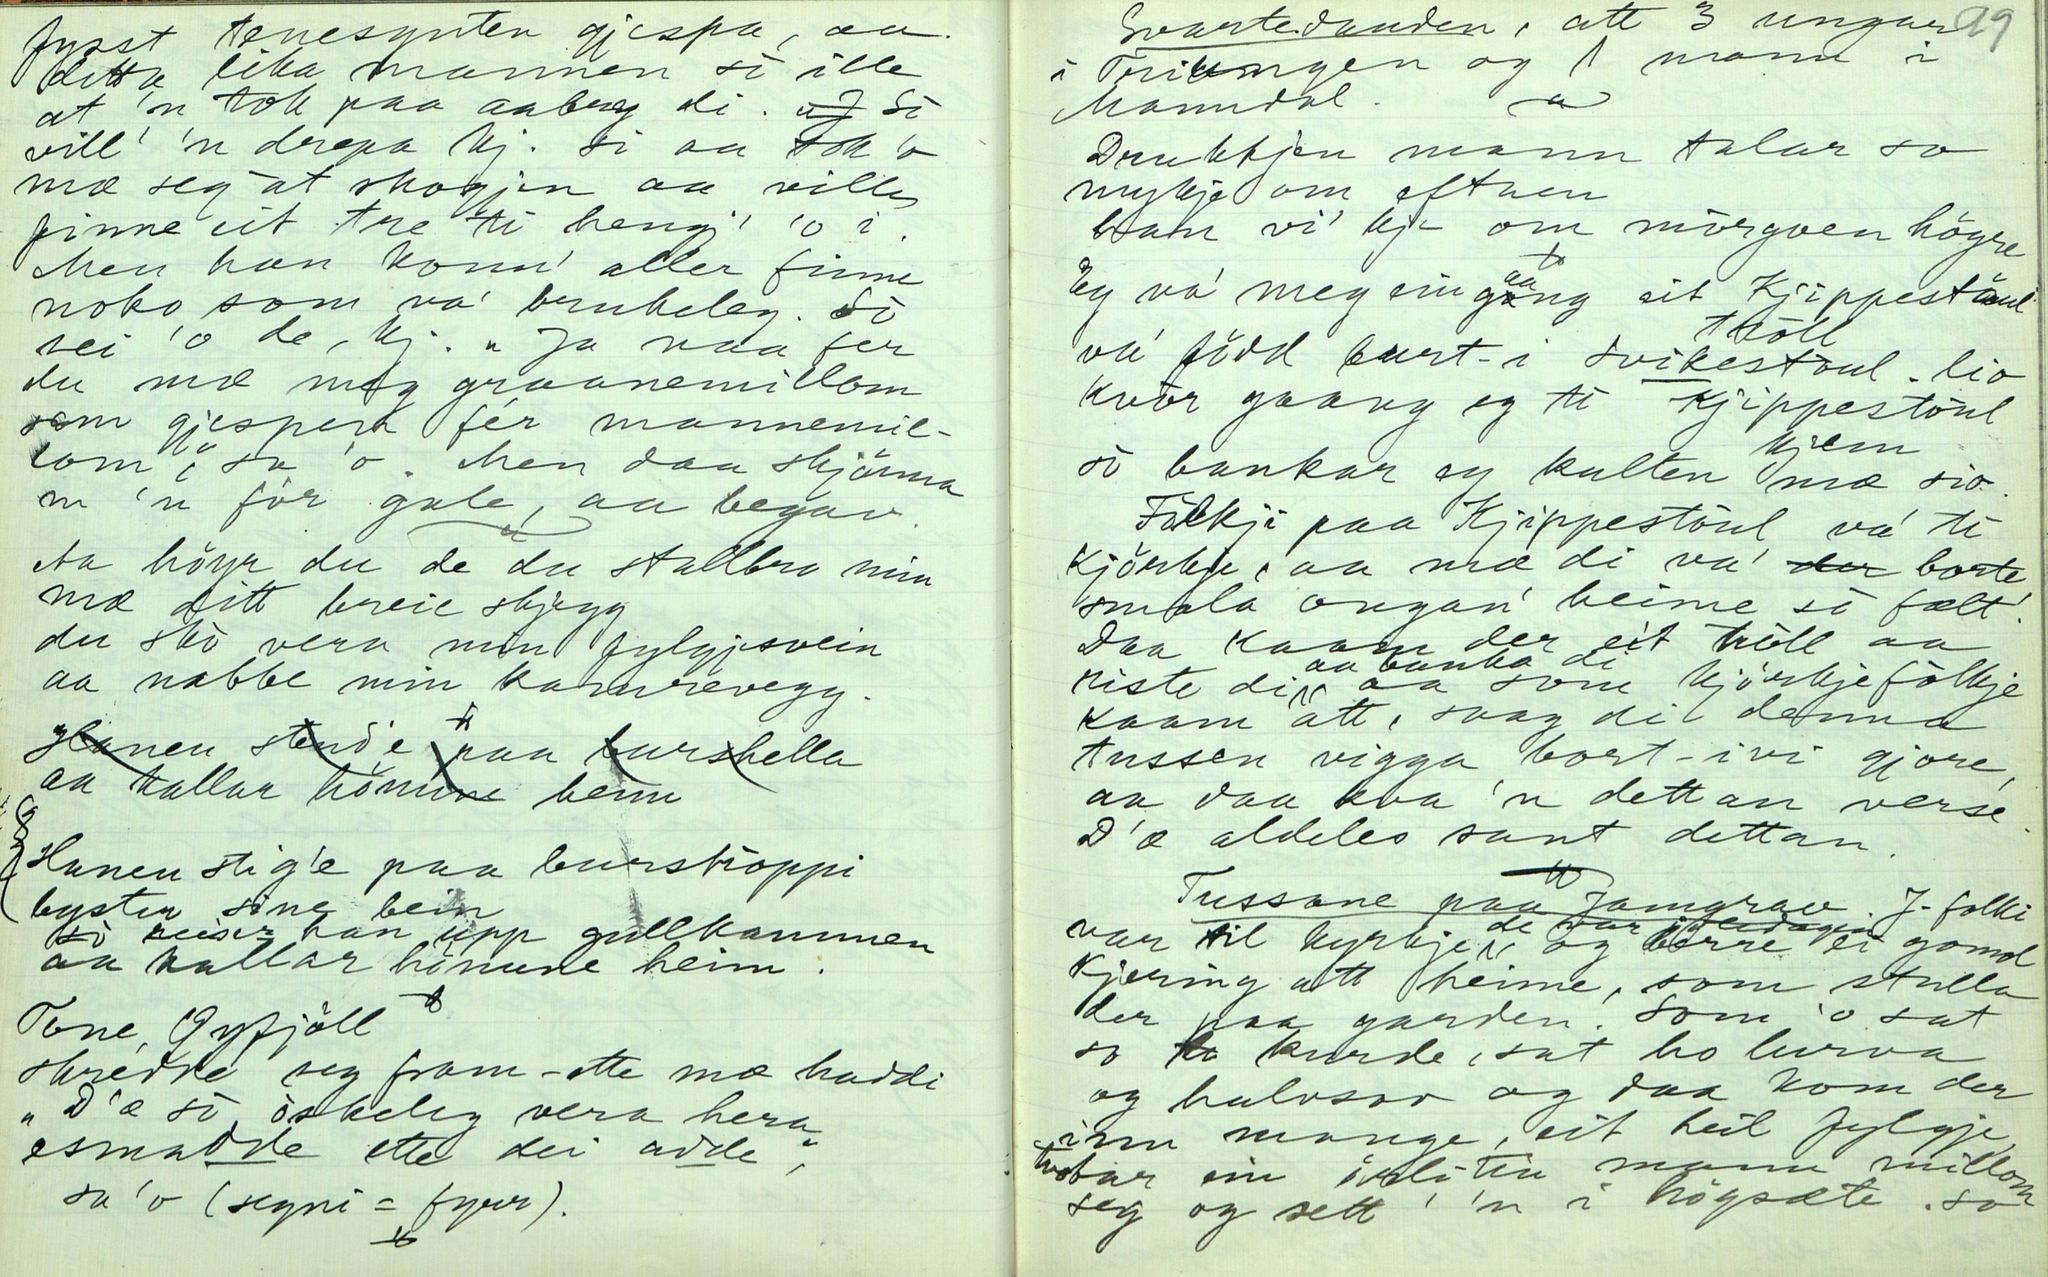 fysst tenesguten gjespa, aa
ditta lika mannen so ille
at 'n tok paa aabrey di. So
vill' 'n drepa kj. si aa tok 'o
mæ seg at skogjen aa ville
finne eit tre ti hengj' 'o i.
Men han konn' aller finne
noko som va' brukeleg. So
sei 'o de, kj. „Ja naa fer
du mæ meg graanemillom
som gjespen fér mannemil-
lom", sa 'o. Men daa skjöna
'n fór gale, aa begav.
Aa höyr du de du stallbro min
mæ ditt breie skjegg
du sko vera min fylgjesvein
aa nabbe min kamrevegg.
Hanen stend'e paa burshella
aa kallar hönune heim
Hanen stig'e paa burstroppi
byster sine bein
so reiser han upp gullkammen
aa kallar hönune heim.
Tone, Öyfjöll
skredde seg fram-ette mæ haddi
„D'æ so öskeleg vera hera
esmadde ette dei adde",
sa 'o (segni = fyrr).
19
Svartedauden, att 3 ungar
i Tori&ngen og 1 mann i
Manndal.
Drukkjen mann talar so
mykje om eftaen
han vi' kje om mörgoen högre
Eg va' meg ein gaang eit Kjippestöul
tröll
va' född burt-i Svikestoul-lio
Kvör gaang eg ti Kjippestöul
kjem
so bankar eg kulten mæ sio.
Fölkji paa Kjippestöul va' ti
Kjörkje, aa mæ di va' der borte
smala ongan' heime so fælt!
Daa kaam der eit tröll aa
aa banka di
riste di, aa som kjörkjefölkje
kaam att, saag di denna
tussen vigga bort-ivi gjore,
aa daa kva 'n dettan verse.
D'æ aldeles sant dettan.
Tussane paa Jamgrav. J-folki
de var joledagen
var til kyrkje, og berre ei gomol
Kjering att heime, som stulla
der paa garden. Som 'o sat
so kurde, sat ho lurva
og halvsov og daa kom der
inn mange, eit heil fylgje,
tvo bar ein örliten mann millom
seg og sett' 'n i högsæte. so